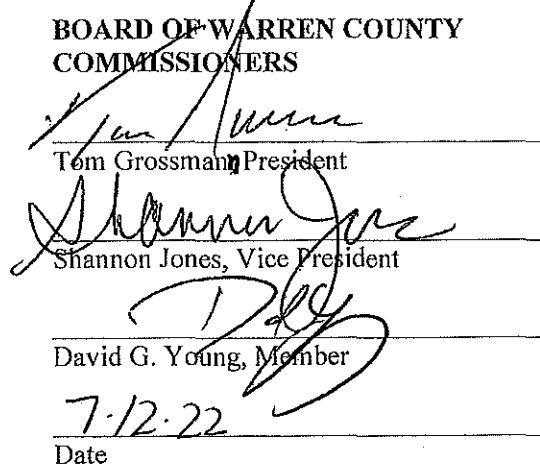 BOARD OF WARREN COUNTY
COMMISSIONERS
Tom Grossmann President
Shannon Jones
Shannon Jones, Vice President
David G. Young, Member
7.12.22
Date